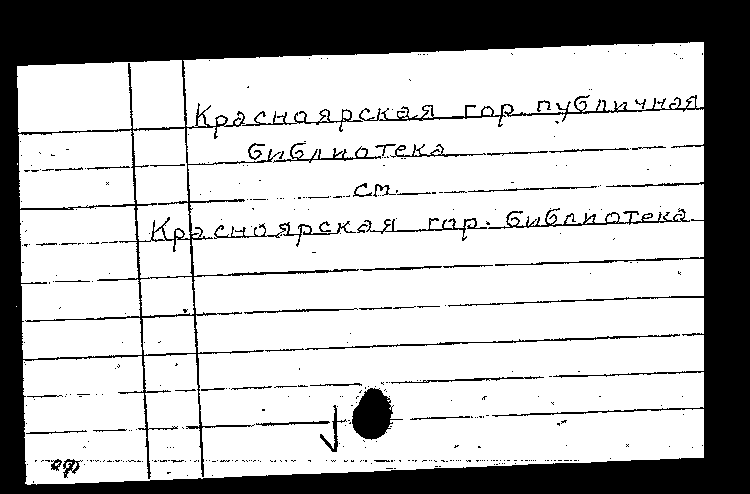 Красноярская гор. публичная
библиотека
см.
Красноярская гор. библиотека